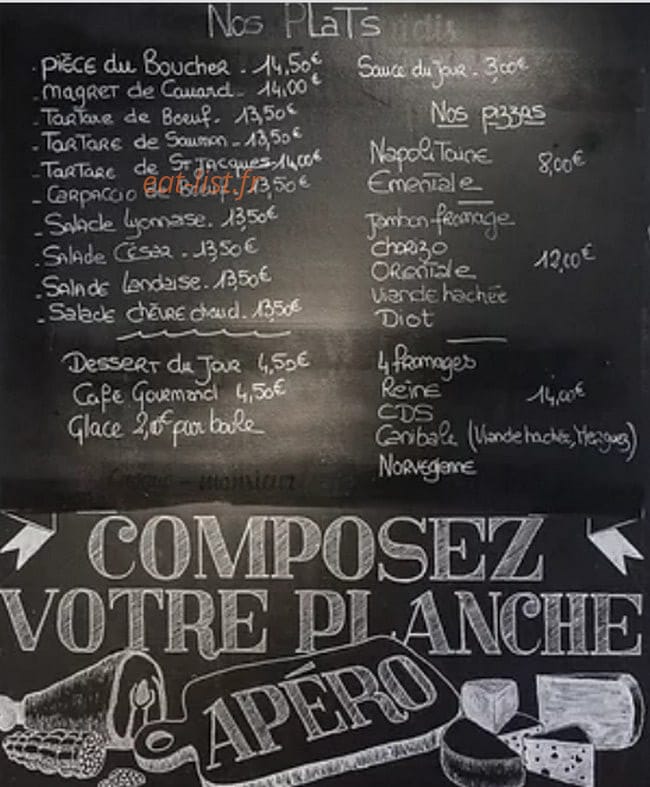 Nos PLaTs
- PIÈCE du Boucher - 14,50€
- MAGRET de Canard - 14,00€
- TARTARE de Boeuf. 13,50€
- TARTARE de Saumon - 13,50€
- TARTARE de ST JACQUES - 14,00€
- CARPACCIO de Boeuf. 13,50€
eat-list.fr
- Salade Lyonnaise. 13,50€
- SALADE CÉSAR - 13,50€
- SALADE Landaise. 13,50€
- SALADE CHÈVRE chaud. 13,50€
DESSERT du Jour 4,50€
Café Gourmand 4,50€
Glace par boule
Sauce du jour - 3,00€
Nos pizzas
NapoliTaine 8,00€
Ementale
Jambon-fromage
chorizo 12,00€
ORientale
Viande hachée
Diot
4 fromages
Reine 14,00€
CDS
Canibale (Viande hachée, Merguez)
NORVégienne
COMPOSEZ
VOTRE PLANCHE
APÉRO